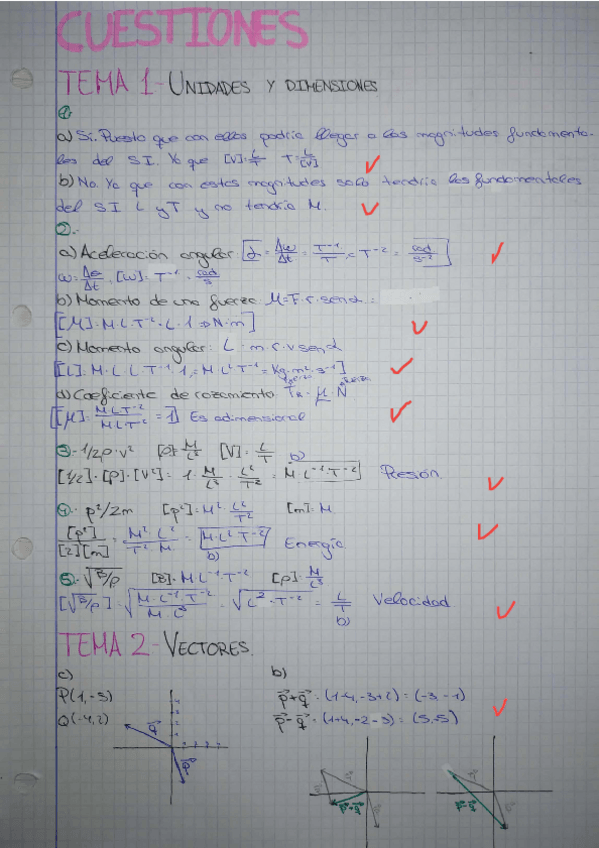 CUESTIONES
TEMA 1- UNIDADES Y DIMENSIONES
1.
a) Sí. Puesto que con ellos podría llegar a las magnitudes fundamenta-
les del S.I. Ya que [V]=L/T T=L/[V]
b) No. Ya que con estas magnitudes solo tendría las fundamentales
del S.I L y T y no tendría M.
2.-
a) Aceleración angular [α = Δω/Δt = T⁻¹/T = T⁻² = rad/s⁻²]
ω = Δθ/Δt, [ω] = T⁻¹ = rad/s
b) Momento de una fuerza: M=F·r·senα =
[M]= M·L·T⁻²·L·1 ⇒ N·m]
c) Momento angular: L = m·r·v senα
[L]= M·L·L T⁻¹·1 = M L² T⁻¹ = Kg·m²·s⁻¹]
d) Coeficiente de rozamiento: F_R = μ·N
[[μ] = MLT⁻²/MLT⁻² = 1] Es adimensional
3.- 1/2ρ·v² [ρ]=M/L³ [V]=L/T b)
[1/2]·[ρ]·[V²]= 1·M/L³·L²/T² = M·L⁻¹T⁻² Presión
4.- p²/2m [p²]=M²·L²/T² [m]=M
[p²]/[2][m] = M²L²/T²M = M·L²T⁻² Energía
b)
5.- √B/ρ [B]=ML⁻¹T⁻² [ρ]=M/L³
[√B/ρ] = √M·L⁻¹T⁻²/M·L³ = √L²·T⁻² = L/T Velocidad
b)
TEMA 2- VECTORES.
c) b)
P(1,-3) p⃗+q⃗ = (1-4,-3+2) = (-3 -1)
Q(-4,2) p⃗-q⃗ = (1+4,-2-3) = (5,-5)
q⃗
p⃗
p⃗+q⃗ p⃗-q⃗